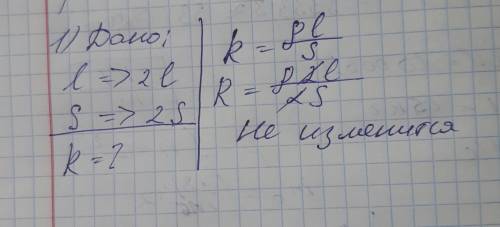 1) Дано:
l => 2l
S => 2S
R = ?
R = ρl/S
R = ρ2l/2S
Не изменится